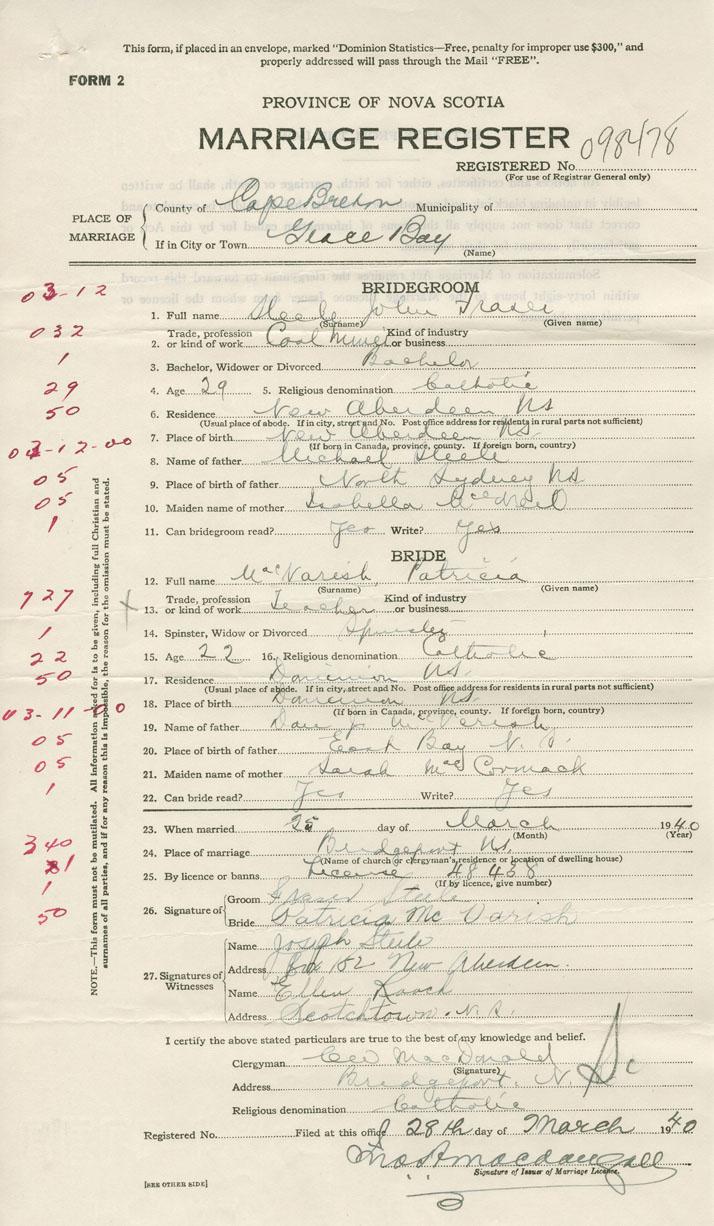 This form, if placed in an envelope, marked "Dominion Statistics—Free, penalty for improper use $300," and
properly addressed will pass through the Mail "FREE".
FORM 2
PROVINCE OF NOVA SCOTIA
MARRIAGE REGISTER
098478
REGISTERED No.
(For use of Registrar General only)
PLACE OF MARRIAGE
County of Cape Breton Municipality of
If in City or Town Glace Bay
(Name)
BRIDEGROOM
03-12
1. Full name Steele John Fraser
(Surname) (Given name)
032
2. Trade, profession or kind of work Coal Miner Kind of industry or business
1
3. Bachelor, Widower or Divorced Bachelor
29
4. Age 29 5. Religious denomination Catholic
50
6. Residence New Aberdeen NS
(Usual place of abode. If in city, street and No. Post office address for residents in rural parts not sufficient)
03-12-00
7. Place of birth New Aberdeen NS.
(If born in Canada, province, county. If foreign born, country)
8. Name of father Michael Steele
05
9. Place of birth of father North Sydney NS
05
10. Maiden name of mother Isabella McNeil
1
11. Can bridegroom read? Yes Write? Yes
BRIDE
12. Full name MacVarish Patricia
(Surname) (Given name)
727
13. Trade, profession or kind of work Teacher Kind of industry or business
1
14. Spinster, Widow or Divorced Spinster
22
15. Age 22 16. Religious denomination Catholic
50
17. Residence Dominion NS.
(Usual place of abode. If in city, street and No. Post office address for residents in rural parts not sufficient)
03-11-00
18. Place of birth Dominion NS.
(If born in Canada, province, county. If foreign born, country)
19. Name of father Dan J. McVarish
05
20. Place of birth of father East Bay N.S.
05
21. Maiden name of mother Sarah MacCormack
1
22. Can bride read? Yes Write? Yes
23. When married 25 day of March 1940
(Month) (Year)
340
24. Place of marriage Bridgeport NS.
(Name of church or clergyman's residence or location of dwelling house)
1
25. By licence or banns License 48458
(If by licence, give number)
1
50
26. Signature of
Groom Fraser Steele
Bride Patricia Mc Varish
27. Signatures of Witnesses
Name Joseph Steele
Address Box 152 New Aberdeen.
Name Ellen Roach
Address Scotchtown. N.S.
NOTE.—This form must not be mutilated. All information asked for is to be given, including full Christian and
surnames of all parties, and if for any reason this is impossible, the reason for the omission must be stated.
I certify the above stated particulars are true to the best of my knowledge and belief.
Clergyman MacDonald
(Signature)
Address Bridgeport, N.S.
Religious denomination Catholic
Registered No. Filed at this office 28th day of March 1940
Jno A Macdougall
Signature of Issuer of Marriage Licence.
[SEE OTHER SIDE]